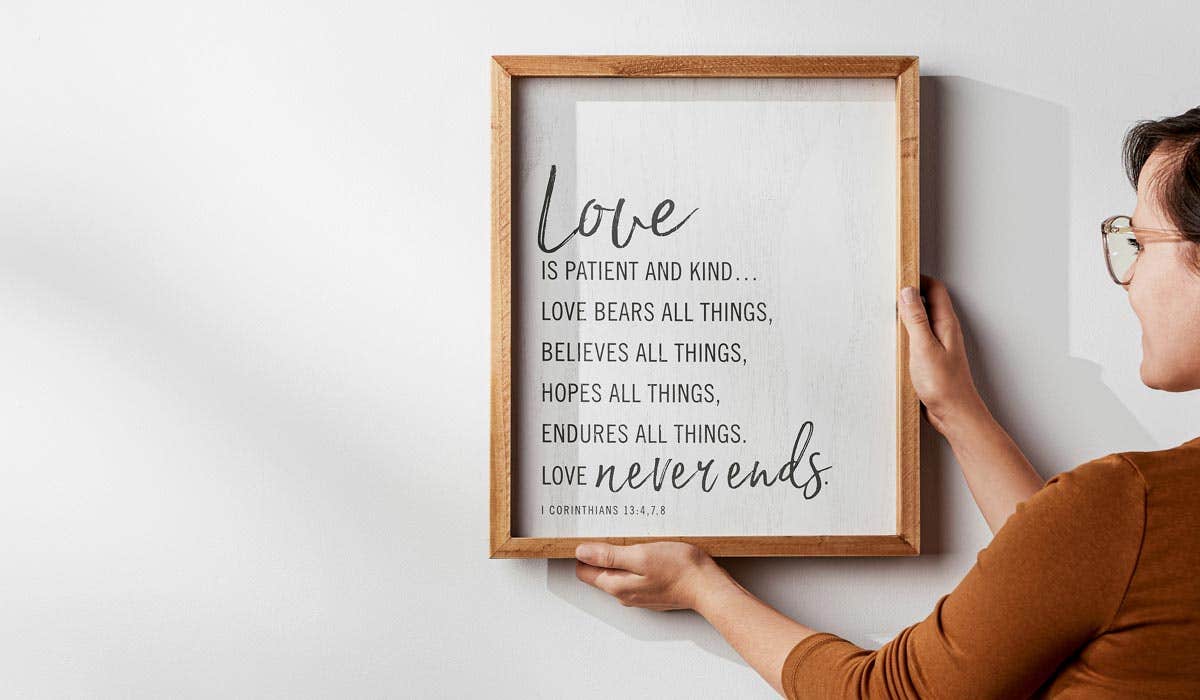 Love
IS PATIENT AND KIND...
LOVE BEARS ALL THINGS,
BELIEVES ALL THINGS,
HOPES ALL THINGS,
ENDURES ALL THINGS.
LOVE never ends.
I CORINTHIANS 13:4,7,8